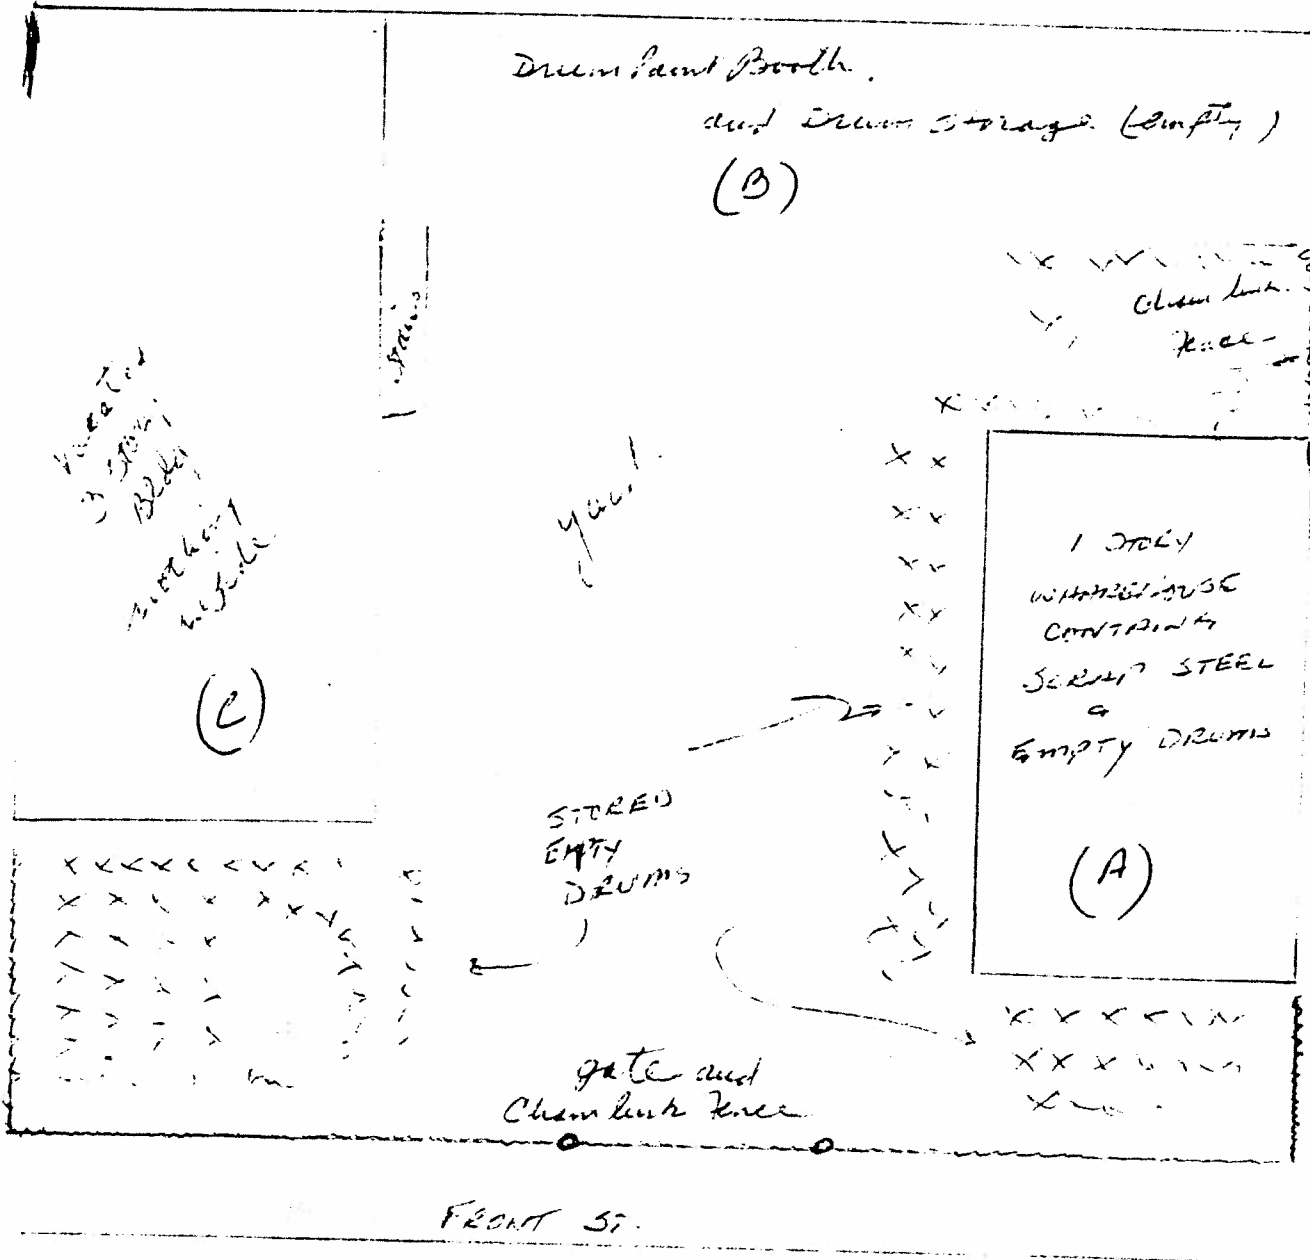 Drum Paint Booth.
and Drum Storage (empty)
(B)
Chain link
Fence
Stairs
Vacated
3 Story
Bldg
Nothing
inside
(C)
yard
1 STORY
WHAREHOUSE
CONTAINING
SCRAP STEEL
&
EMPTY DRUMS
(A)
STORED
EMTY
DRUMS
gate and
Chain link Fence
FRONT ST.